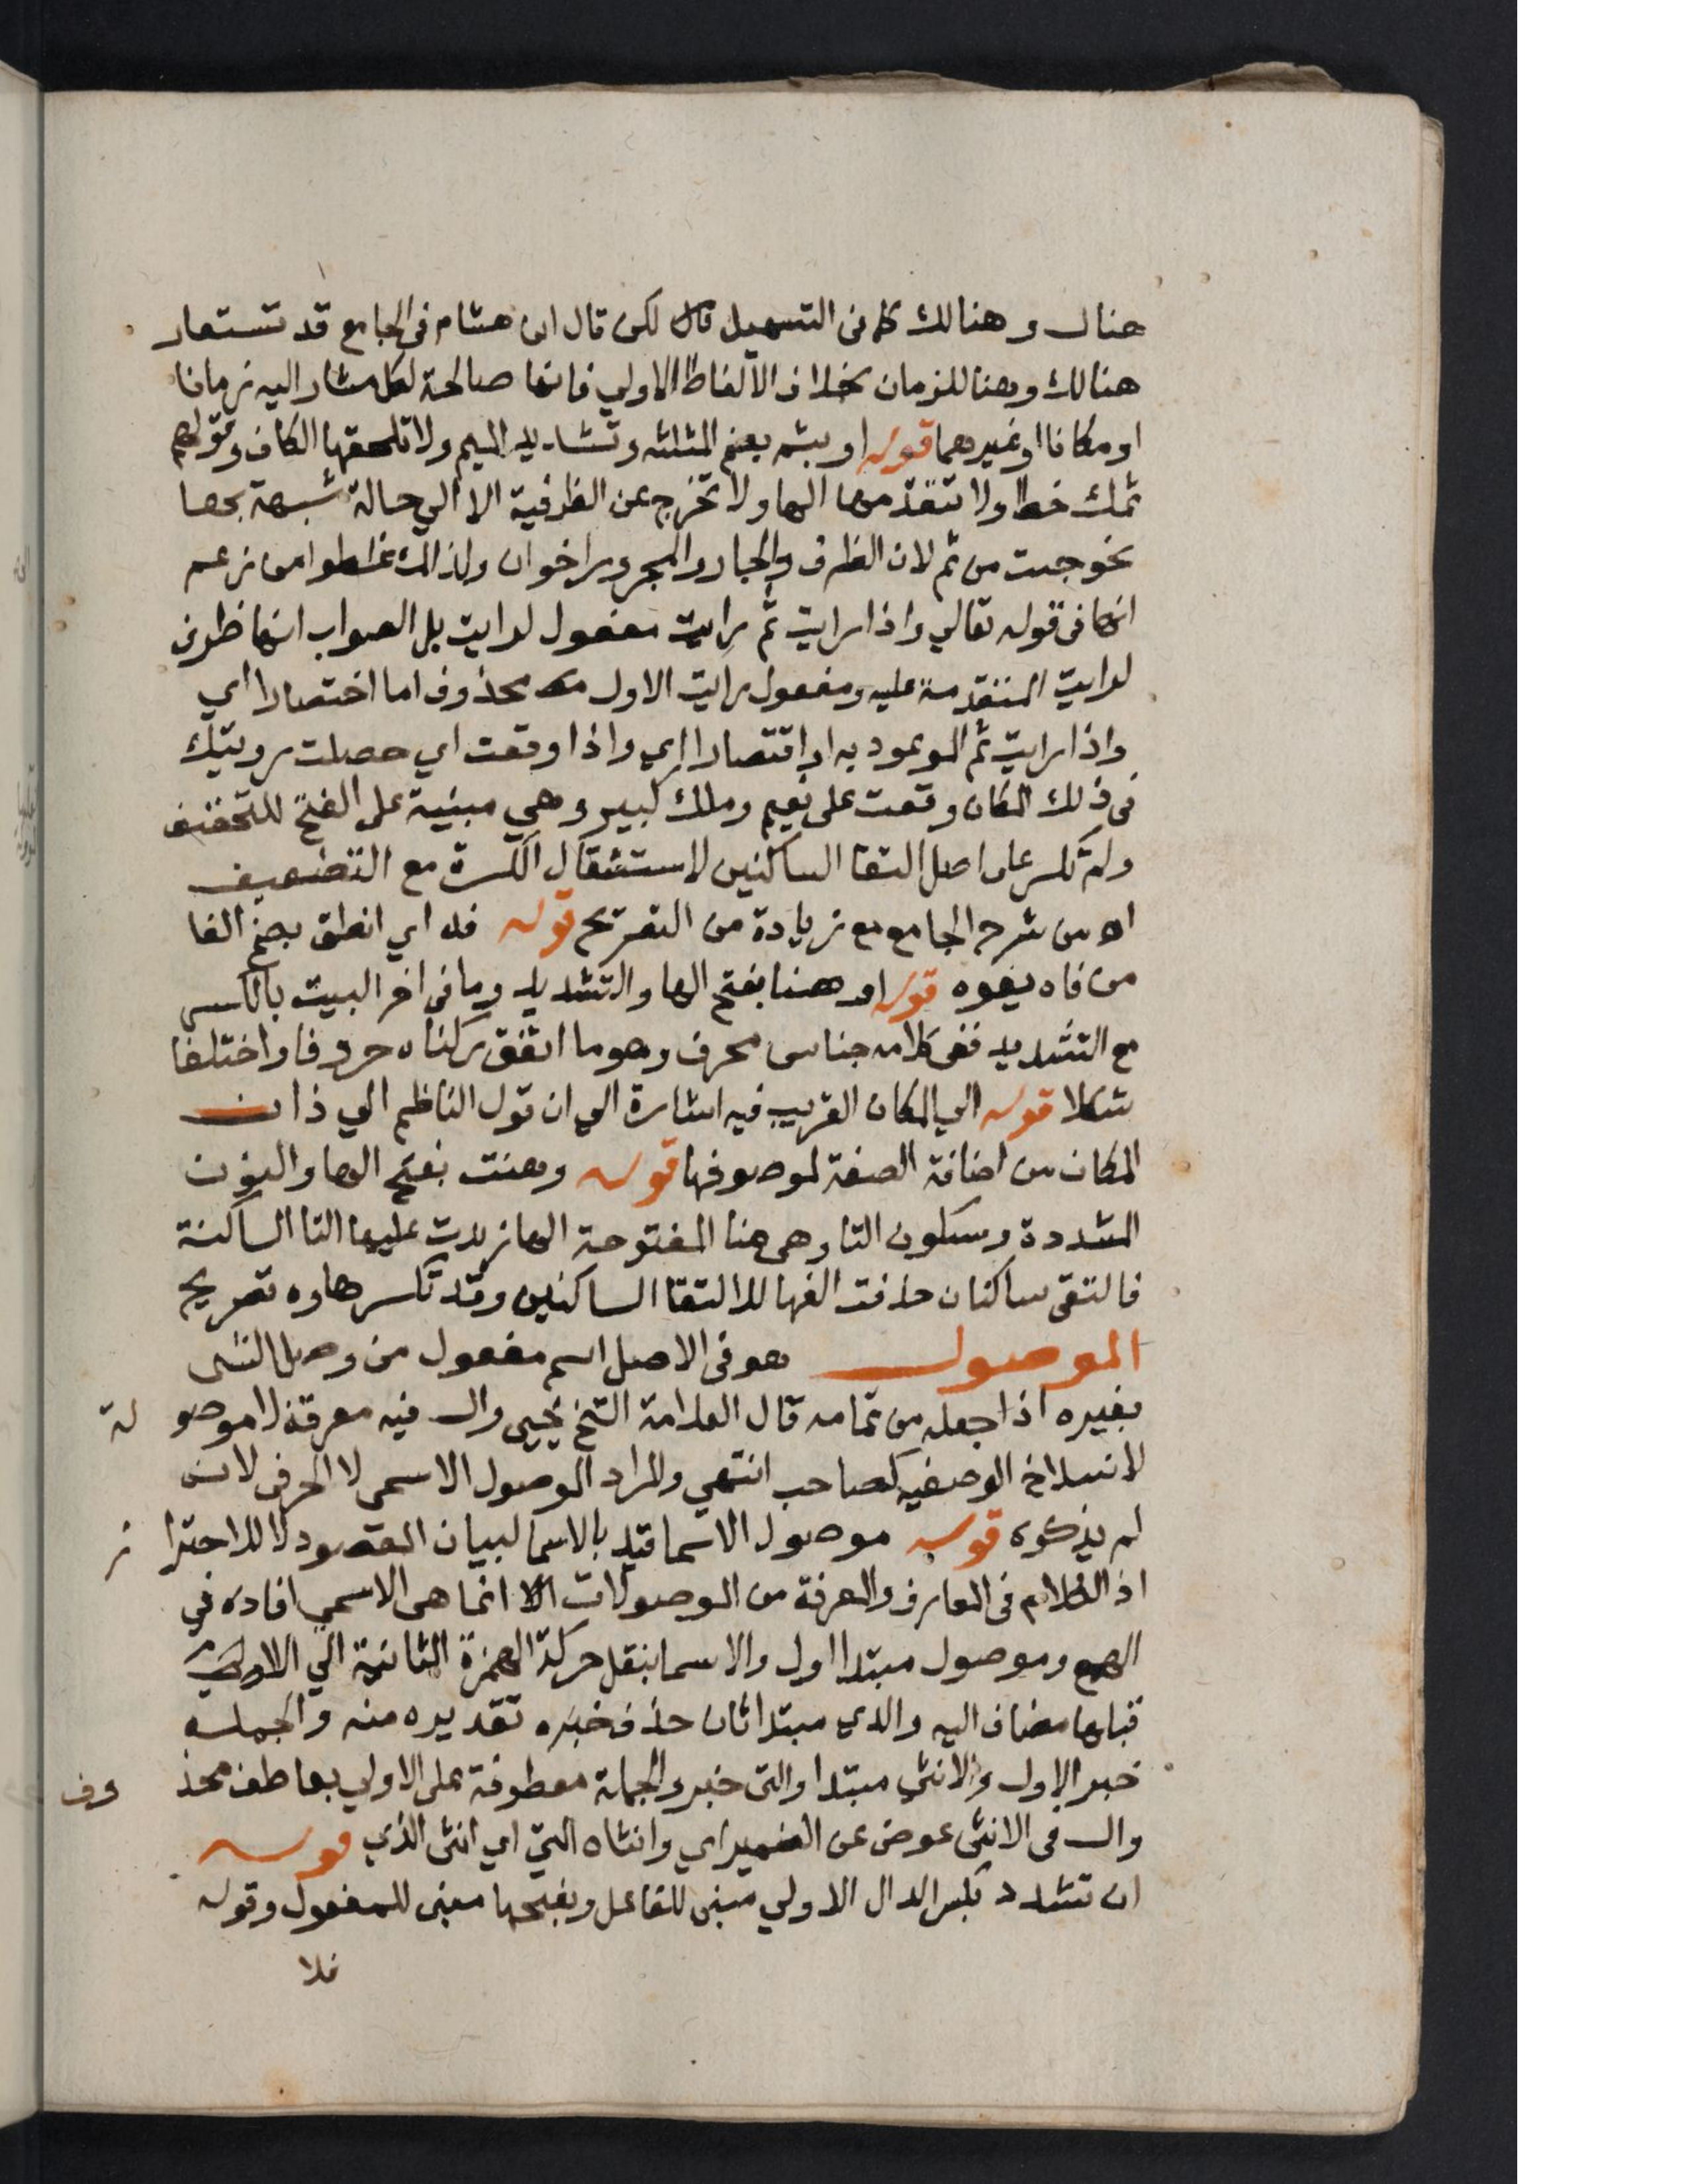 هناك وهنالك كما فى التسهيل قال لكن قال ابن هشام فى الجامع قد تستعار
هنالك وهنا للزمان بخلاف الالفاظ الاولي فانها صالحة لكل مشار اليه زمانا
او مكانا او غيرهما قوله او بثم بفتح المثلثه وتشديد الميم ولا تلحقها الكاف وقولهم
ثمك خطا ولا تتقدمها الها ولا تخرج عن الظرفية الا الي حالة شبيهة بها
نحو جيت من ثم لان الظرف والجار والمجرور اخوان ولذلك غلطوا من زعم
انها فى قوله تعالي واذا رايت ثم رايت مفعول لرايت بل الصواب انها ظرف
لرايت المتقدمة عليه ومفعول رايت الاول محذوف اما اختصارا اي
واذا رايت ثم الموعود به او اقتصارا اي واذا وقعت اي حصلت رويتك
فى ذلك المكان وقعت على نعيم وملك كبير وهي مبنية على الفتح للتخفيف
ولم تكسر على اصل التقا الساكنين لاستثقال الكسرة مع التضعيف
اه من شرح الجامع مع زيادة من التصريح قوله فه اي انطق بضم الفا
من فاه يفوه قوله او هنا بفتح الها والتشديد وما فى اخر البيت بالكسر
مع التشديد ففى كلامه جناس محرف وهو ما اتفق ركناه حروفا واختلفا
شكلا قوله الي المكان القريب فيه اشارة الي ان قول الناظم الي دان
المكان من اضافة الصفة لموصوفها قوله وهنت بفتح الها والنون
المشددة وسكون التا وهى هنا المفتوحة الها زيدت عليها التا الساكنة
فالتقى ساكنان حذفت الفها لالتقا الساكنين وقد تكسر هاوه تصريح
الموصول هو فى الاصل اسم مفعول من وصل الشى
بغيره اذا جعله من تمامه قال العلامة الشيخ يحيى وال فيه معرفة لا موصولة
لانسلاخ الوصفيه كصاحب انتهي والمراد الموصول الاسمى لا الحرفى لانه
لم يذكره قوله موصول الاسما قيد بالاسما لبيان المقصود لا للاحتراز
اذ الكلام فى المعارف والمعرفة من الموصولات انما هى الاسمي افاده فى
الهمع وموصول مبتدا اول والاسما بنقل حركة الهمزة الثانية الي اللام
قبلها مضاف اليه والذي مبتدا ثان حذف خبره تقديره منه والجملة
خبر الاول والانثى مبتدا والتى خبر والجملة معطوفة على الاولي بعاطف محذوف
وال فى الانثى عوض عن الضمير اي وانثاه التي اي انثى الذي قوله
ان تشدد بكسر الدال الاولي مبنى للفاعل وبفتحها مبنى للمفعول وقوله
فلا